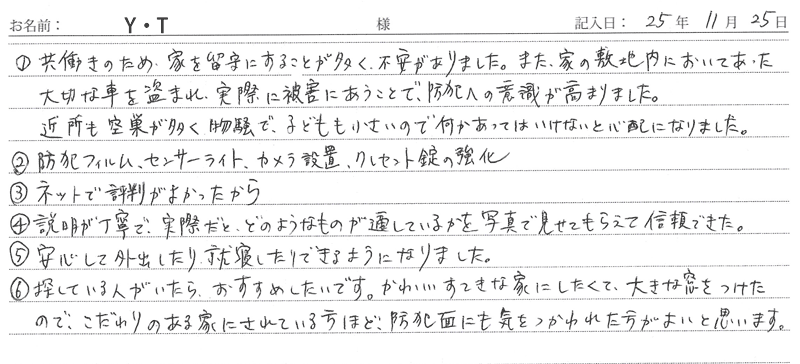 お名前： Y・T 様 記入日： 25 年 11 月 25 日
① 共働きのため、家を留守にすることが多く、不安がありました。また、家の敷地内においてあった
大切な車を盗まれ、実際に被害にあうことで、防犯への意識が高まりました。
近所も空巣が多く物騒で、子どもも小さいので何かあってはいけないと心配になりました。
② 防犯フィルム、センサーライト、カメラ設置、クレセント錠の強化
③ ネットで評判がよかったから
④ 説明が丁寧で、実際だと、どのようなものが適しているかを写真で見せてもらえて信頼できた。
⑤ 安心して外出したり、就寝したりできるようになりました。
⑥ 探している人がいたら、おすすめしたいです。かわいいすてきな家にしたくて、大きな窓をつけた
ので、こだわりのある家にされている方ほど、防犯面にも気をつかわれた方がよいと思います。